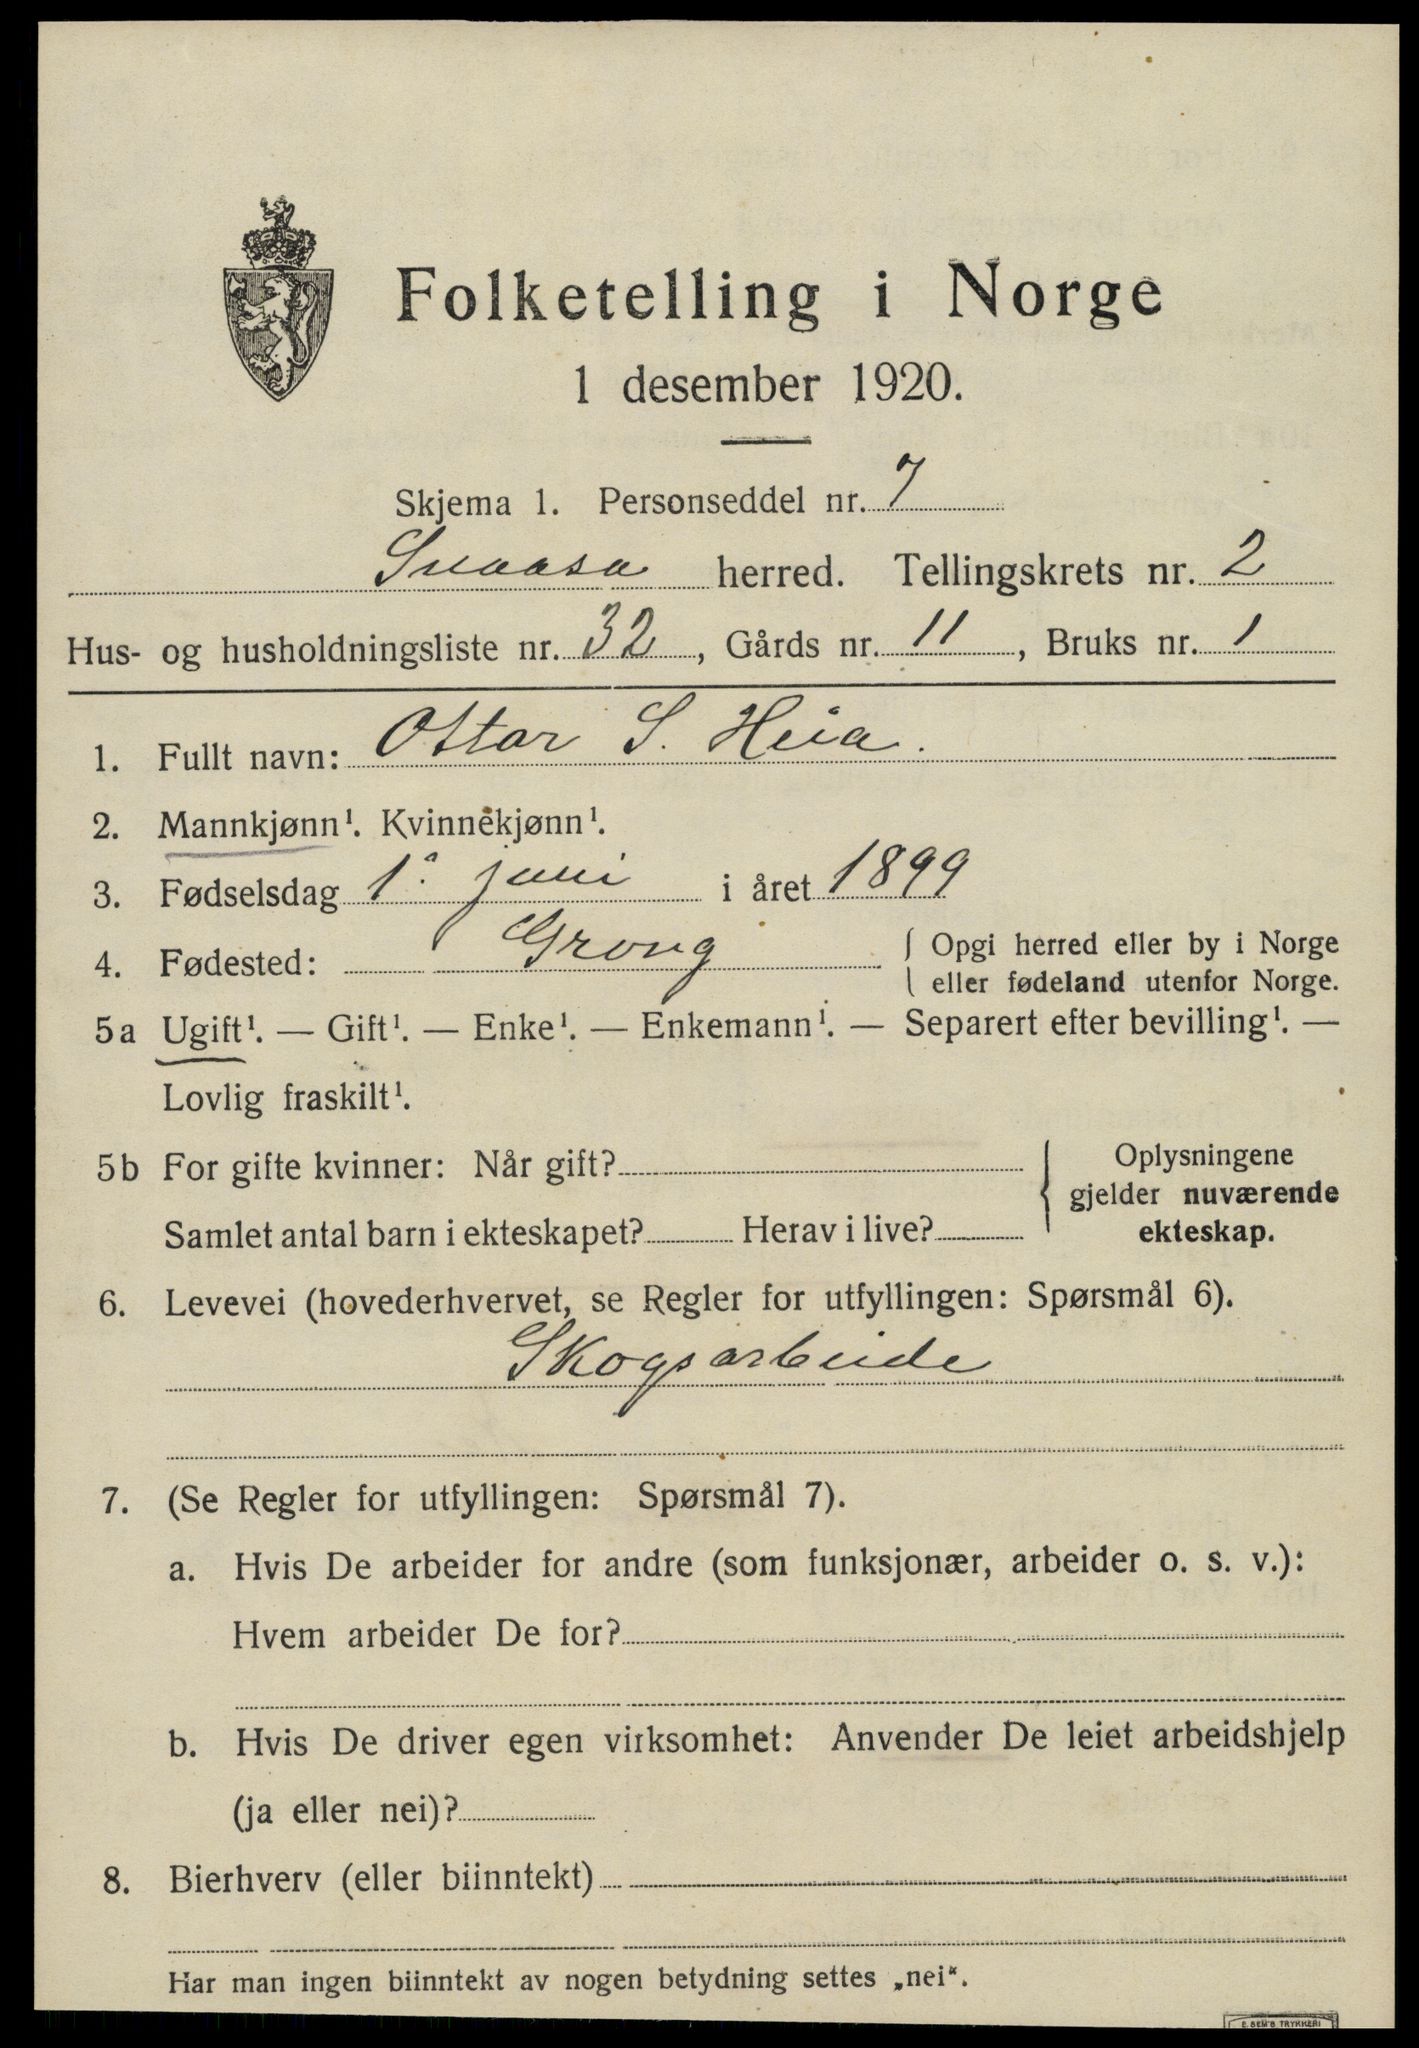 Folketelling i Norge
1 desember 1920.
Skjema 1. Personseddel nr. 7
Snaasa herred. Tellingskrets nr. 2
Hus- og husholdningsliste nr. 32, Gårds nr. 11, Bruks nr. 1
1. Fullt navn: Ottar S. Heia.
2. Mannkjønn¹. Kvinnekjønn¹.
3. Fødselsdag 1. juni i året 1899
4. Fødested: Grong { Opgi herred eller by i Norge
eller fødeland utenfor Norge.
5a Ugift¹. — Gift¹. — Enke¹. — Enkemann¹. — Separert efter bevilling¹. —
Lovlig fraskilt¹.
5b For gifte kvinner: Når gift?
Samlet antal barn i ekteskapet? Herav i live?
{ Oplysningene
gjelder nuværende
ekteskap.
6. Levevei (hovederhvervet, se Regler for utfyllingen: Spørsmål 6).
Skogsarbeide
7. (Se Regler for utfyllingen: Spørsmål 7).
a. Hvis De arbeider for andre (som funksjonær, arbeider o. s. v.):
Hvem arbeider De for?
b. Hvis De driver egen virksomhet: Anvender De leiet arbeidshjelp
(ja eller nei)?
8. Bierhverv (eller biinntekt)
Har man ingen biinntekt av nogen betydning settes „nei“.
E. SEM'S TRYKKERI